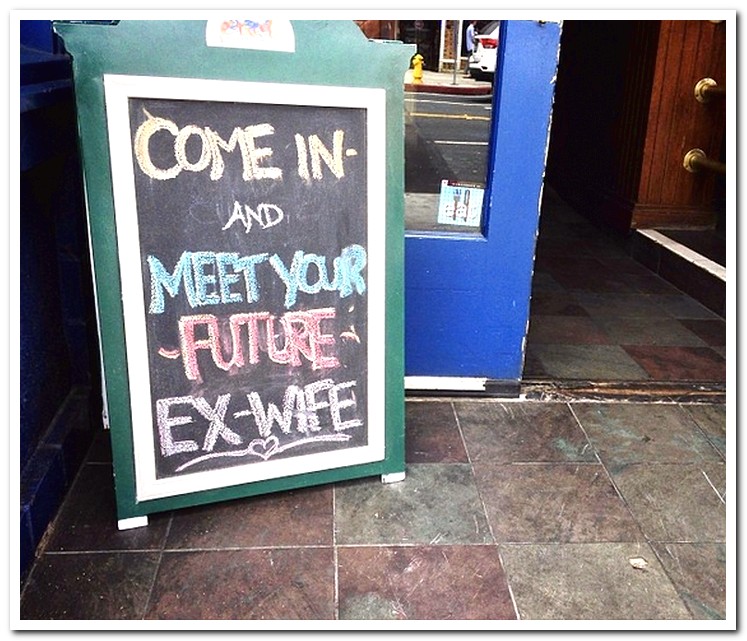 COME IN-
AND
MEET YOUR
-FUTURE-
EX-WIFE